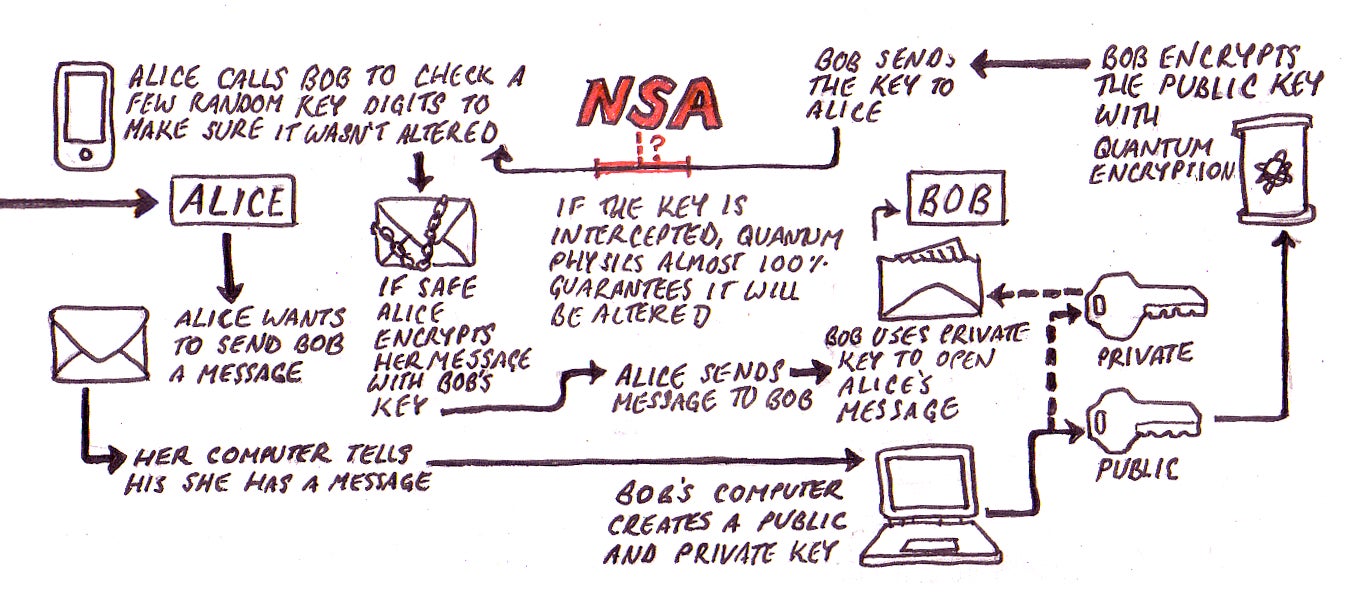 ALICE CALLS BOB TO CHECK A
FEW RANDOM KEY DIGITS TO
MAKE SURE IT WASN'T ALTERED
NSA
?
BOB SENDS
THE KEY TO
ALICE
BOB ENCRYPTS
THE PUBLIC KEY
WITH
QUANTUM
ENCRYPTION
ALICE
ALICE WANTS
TO SEND BOB
A MESSAGE
IF SAFE
ALICE
ENCRYPTS
HER MESSAGE
WITH BOB'S
KEY
IF THE KEY IS
INTERCEPTED, QUANTUM
PHYSICS ALMOST 100%
GUARANTEES IT WILL
BE ALTERED
BOB
BOB USES PRIVATE
KEY TO OPEN
ALICE'S
MESSAGE
PRIVATE
ALICE SENDS
MESSAGE TO BOB
PUBLIC
HER COMPUTER TELLS
HIS SHE HAS A MESSAGE
BOB'S COMPUTER
CREATES A PUBLIC
AND PRIVATE KEY